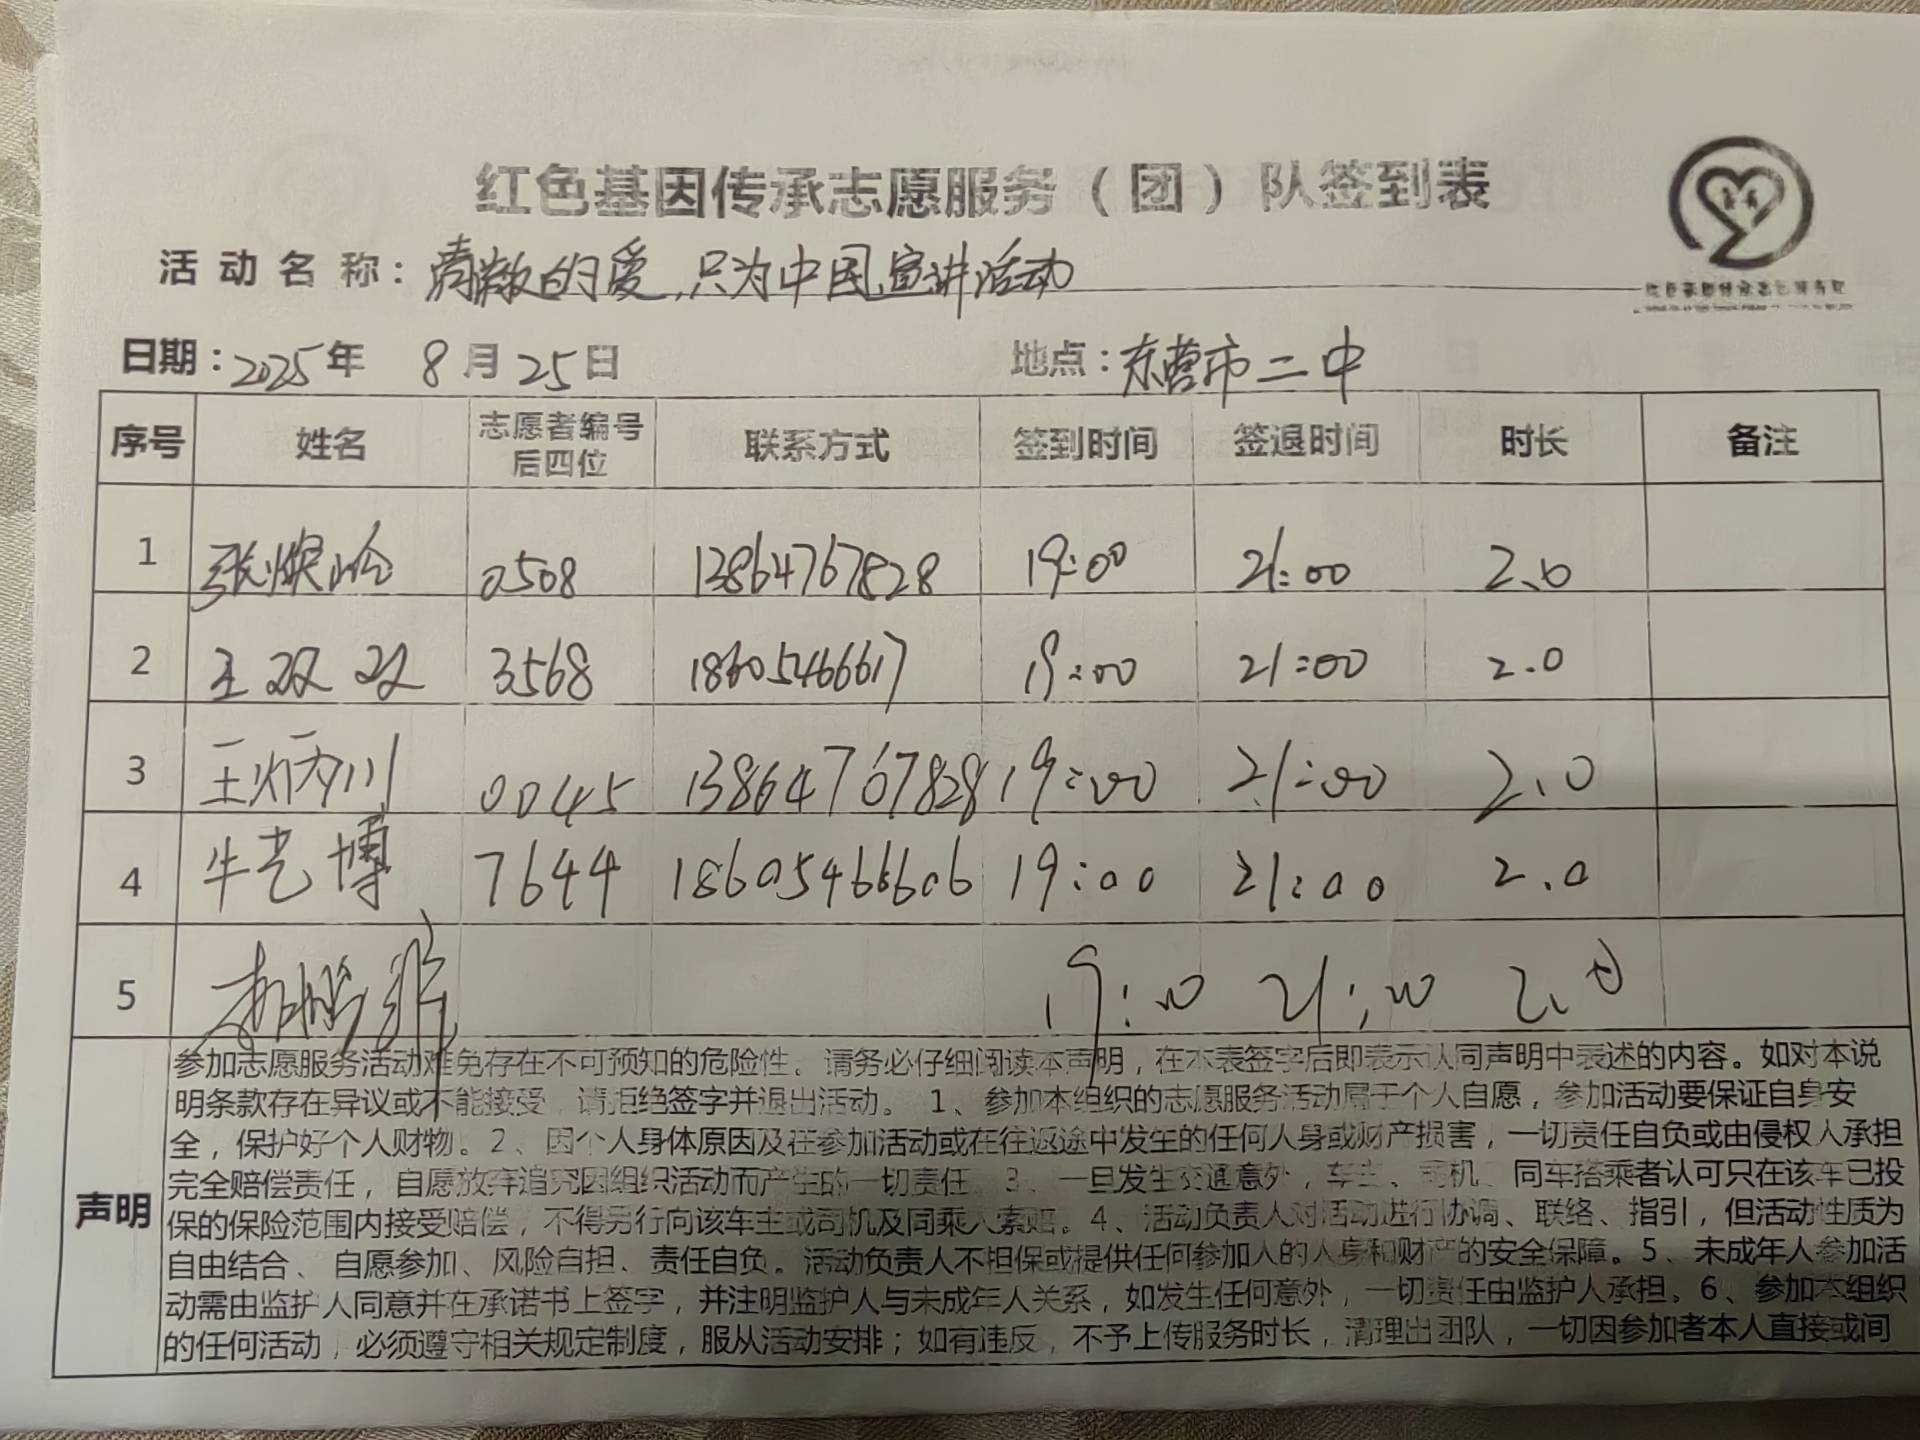 红色基因传承志愿服务（团）队签到表
活动名称：清澈的爱，只为中国宣讲活动
日期：2025年 8月25日 地点：东营市二中
序号 姓名 志愿者编号后四位 联系方式 签到时间 签退时间 时长 备注
1 张 0508 13864767828 19:00 21:00 2.0
2 王双双 3568 18605466617 19:00 21:00 2.0
3 王炳川 0045 13864767828 19:00 21:00 2.0
4 牛艺博 7644 18605466606 19:00 21:00 2.0
5 19:00 21:00 2.0
声明
参加志愿服务活动难免存在不可预知的危险性、请务必仔细阅读本声明，在本表签字后即表示认同声明中表述的内容。如对本说
明条款存在异议或不能接受，请拒绝签字并退出活动。 1、参加本组织的志愿服务活动属于个人自愿，参加活动要保证自身安
全，保护好个人财物。2、因个人身体原因及在参加活动或在往返途中发生的任何人身或财产损害，一切责任自负或由侵权人承担
完全赔偿责任，自愿放弃追究因组织活动而产生的一切责任。3、一旦发生交通意外，车主、司机、同车搭乘者认可只在该车已投
保的保险范围内接受赔偿，不得另行向该车主或司机及同乘人索赔。4、活动负责人对活动进行协调、联络、指引，但活动性质为
自由结合、自愿参加、风险自担、责任自负。活动负责人不担保或提供任何参加人的人身和财产的安全保障。5、未成年人参加活
动需由监护人同意并在承诺书上签字，并注明监护人与未成年人关系，如发生任何意外，一切责任由监护人承担。6、参加本组织
的任何活动，必须遵守相关规定制度，服从活动安排；如有违反，不予上传服务时长，清理出团队，一切因参加者本人直接或间